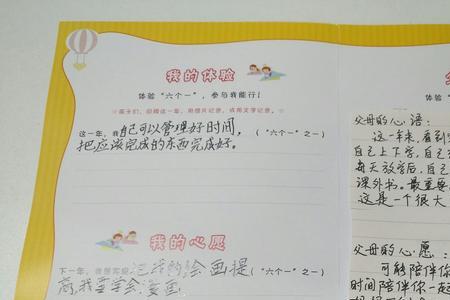 我的体验
体验“六个一”，参与我能行！
☆孩子们，回顾这一年，用照片记录，或用文字记录。☆
这一年，我自己可以管理好时间，（“六个一”之一）
把应该完成的东西完成好。
我的心愿
下一年，我想实现 的绘画提（“六个一”之一）
高，我要学会漫画
父母的心语：
这一年来，看到
自己上下学，自己
每天放学后，自己
课外书。最重要
这是一个很大
父母的心愿：
可能陪伴你
时间陪伴你一起